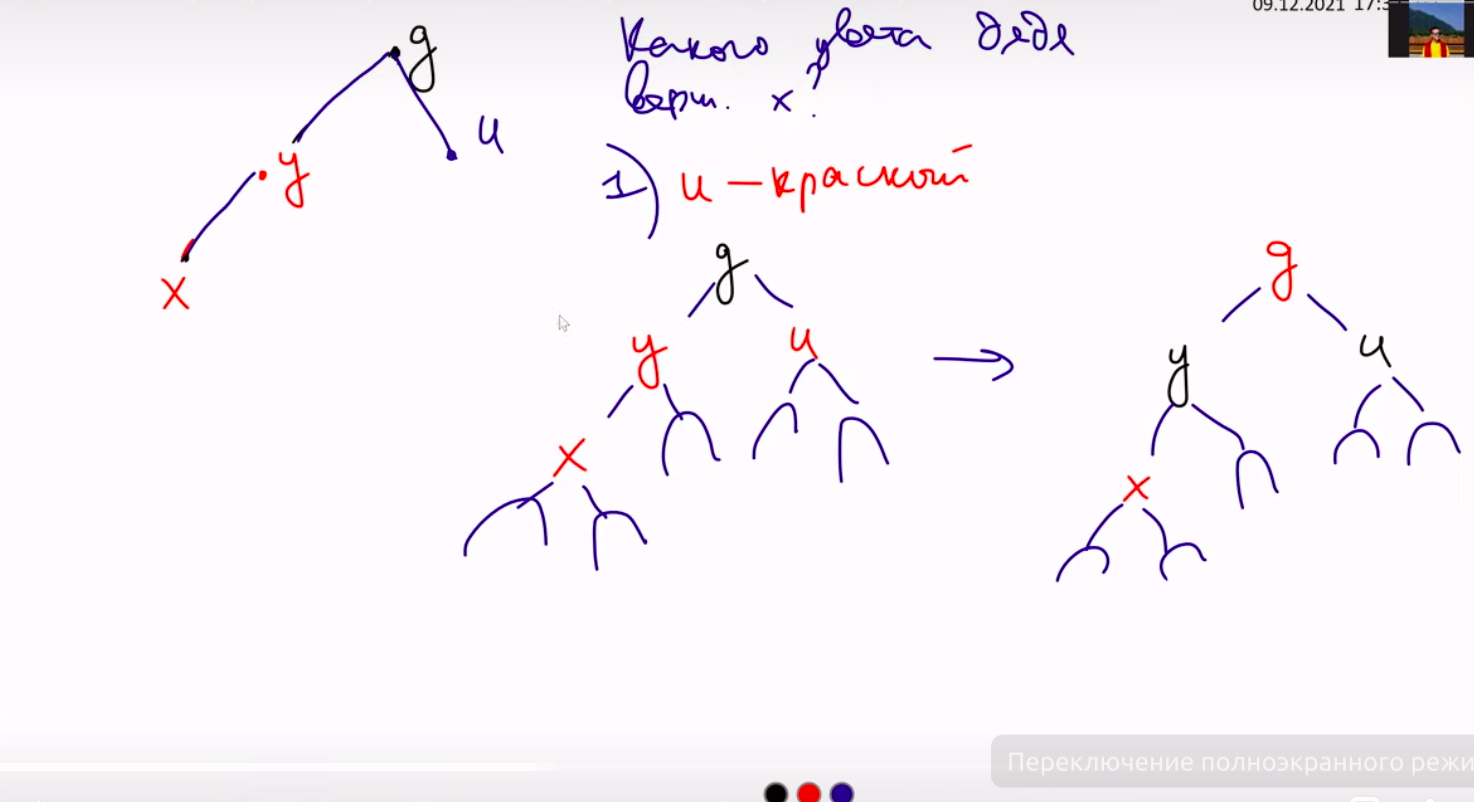 09.12.2021 17:3
g
Какого цвета дядя
верш. x?
u
y
1) u — красный
x
g
g
y
u
y
u
x
x
Переключение полноэкранного режи